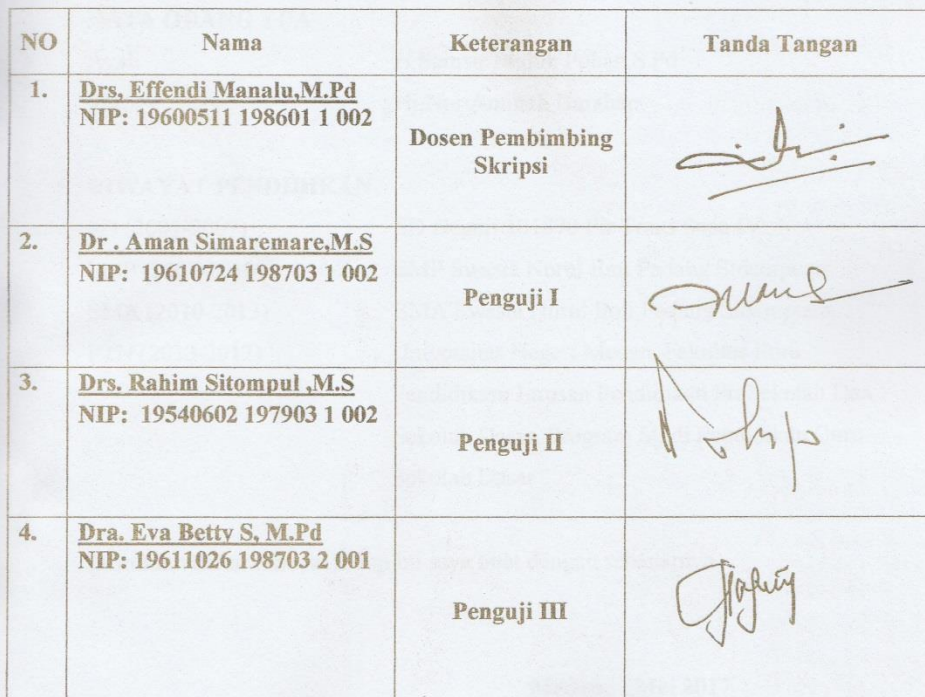 NO Nama Keterangan Tanda Tangan
1. Drs, Effendi Manalu,M.Pd
NIP: 19600511 198601 1 002
Dosen Pembimbing
Skripsi
2. Dr . Aman Simaremare,M.S
NIP: 19610724 198703 1 002
Penguji I
3. Drs. Rahim Sitompul ,M.S
NIP: 19540602 197903 1 002
Penguji II
4. Dra. Eva Betty S, M.Pd
NIP: 19611026 198703 2 001
Penguji III